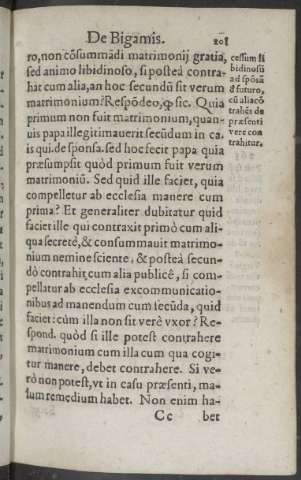 De Bigamis. 208
ro, non cõsummãdi matrimonij gratia,
sed animo libidinoso, si posteà contra-
hat cum alia, an hoc secundũ sit verum
matrimonium? Respõdeo, ꝙ sic. Quia
primum non fuit matrimonium, quan-
uis papa illegitimauerit secũdum in ca.
is qui. de sponsa. sed hoc fecit papa quia
præsumpsit quòd primum fuit verum
matrimoniũ. Sed quid ille faciet, quia
compelletur ab ecclesia manere cum
prima? Et generaliter dubitatur quid
faciet ille qui contraxit primò cum ali-
qua secretè, & consummauit matrimo-
nium nemine sciente, & posteà secun-
dò contrahit cum alia publicè, si com-
pellatur ab ecclesia excommunicatio-
nibus ad manendum cum secũda, quid
faciet: cùm illa non sit verè vxor? Re-
spond. quòd si ille potest contrahere
matrimonium cum illa cum qua cogi-
tur manere, debet contrahere. Si ve-
rò non potest, vt in casu præsenti, ma-
lum remedium habet. Non enim ha-
Cc bet
cessum li
bidinosũ
ad spõsã
d futuro,
cũ aliacõ
trahẽs de
præsenti
vere con
trahitur.